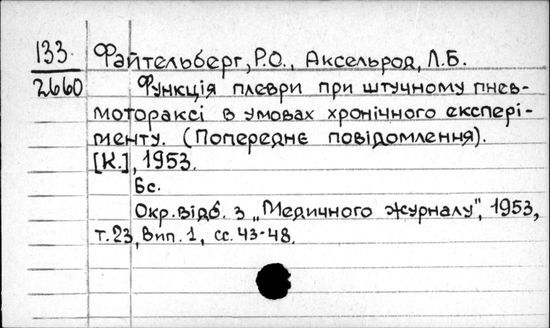 133 Файтельберг, Р.О., Аксельрод, Л.Б.
2660 Функція плеври при штучному пнев-
мотораксі в умовах хронічного експері-
менту. (Попереднє повідомлення).
[К.], 1953.
6с.
Окр. відб. з „Медичного журналу", 1953,
т.23, вип. 1, сс. 43-48.